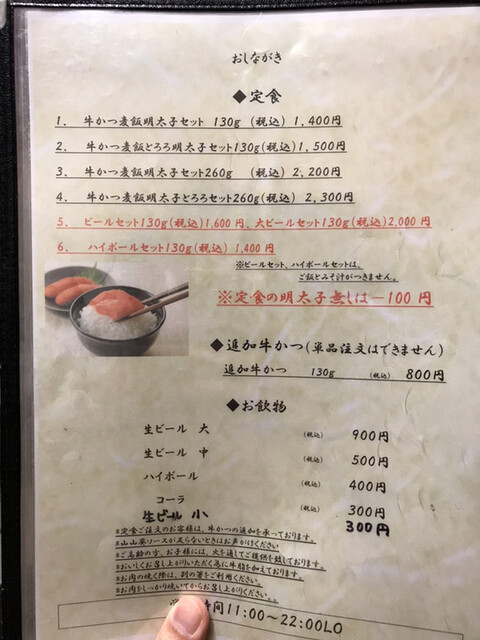 おしながき
◆定食
1. 牛かつ麦飯明太子セット 130g (税込) 1,400円
2. 牛かつ麦飯とろろ明太子セット130g(税込)1,500円
3. 牛かつ麦飯明太子セット260g (税込) 2,200円
4. 牛かつ麦飯明太子とろろセット260g(税込) 2,300円
5. ビールセット130g(税込)1,600円、大ビールセット130g(税込)2,000円
6. ハイボールセット130g(税込) 1,400円
※ビールセット、ハイボールセットは、
ご飯とみそ汁がつきません。
※定食の明太子無しは-100円
◆追加牛かつ(単品注文はできません)
追加牛かつ 130g (税込) 800円
◆お飲物
生ビール 大 (税込) 900円
生ビール 中 (税込) 500円
ハイボール (税込) 400円
コーラ (税込) 300円
生ビール 小 300円
※定食ご注文のお客様は、牛かつの追加を承っております。
※山山葵ソースが足らないときはお声がけください
※ご高齢の方、お子様には、火を通してご提供を致しております。
※おいしくお召し上がりいただく為に牛脂を加えております。
※お肉の焼く際は、別の箸をご利用ください。
※お肉をしっかり焼いてからお召し上がりください。
時間11:00~22:00LO